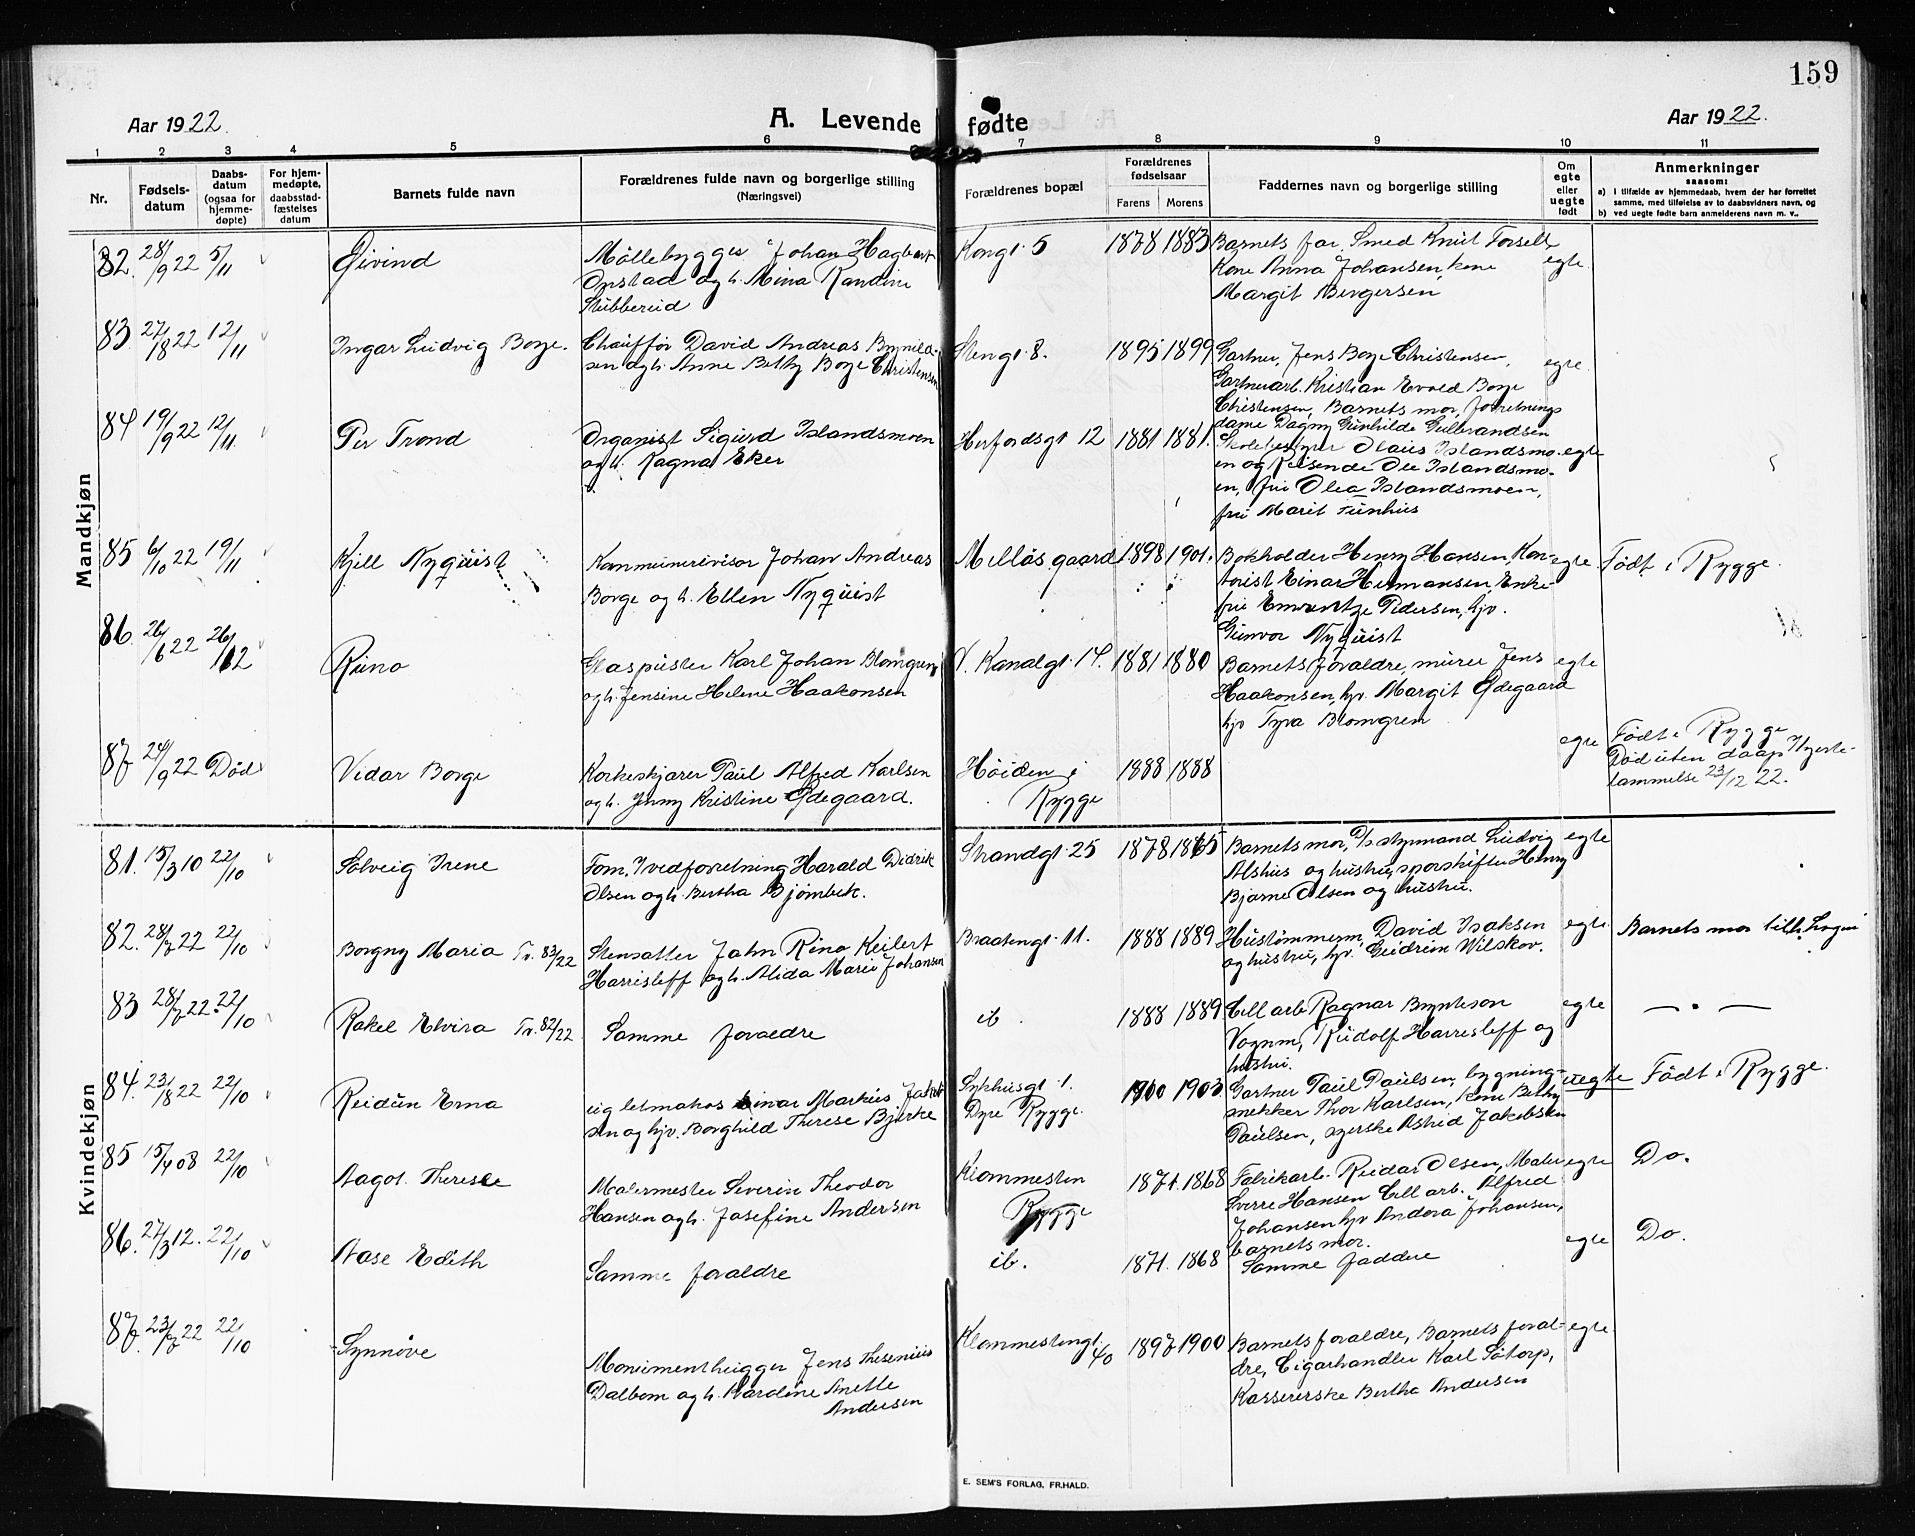 159
Aar 1922.
A. Levende fødte
Aar 1922.
1 2 3 4 5 6 7 8 9 10 11
Nr.
Fødsels-
datum
Daabs-
datum
(ogsaa for
hjemme-
døpte)
For hjem-
medøpte,
daabsstad-
fæstelses
datum
Barnets fulde navn
Forældrenes fulde navn og borgerlige stilling
(Næringsvei)
Forældrenes bopæl
Forældrenes
fødselsaar
Farens Morens
Faddernes navn og borgerlige stilling
Om
egte
eller
uegte
født
Anmerkninger
saasom:
a) i tilfælde av hjemmedaab, hvem der har forrettet
samme, med tilføielse av to daabsvidners navn, og
b) ved uegte fødte barn anmelderens navn m. v..
Mandkjøn
82. 28/9 22 5/11 Øivind
Møllebygger Johan Hagbart
Opstad og h. Mina Randine
Stubberud
Kongt. 5 1878 1883
Barnets far, Smed Knut Torsell
Kone Anna Johansen, kone
Margit Bergersen
egte.
83. 27/8 22 12/11 Ingar Ludvig Borge.
Chauffør David Andreas
sen og h. Anne Bethy Borge Christensen
Stengt. 8. 1895 1899
Gartner, Jens Borge Christensen,
Gartnerarb. Kristian Evald Borge
Christensen, Barnets mor, forretnings
dame Dagny Gunhilde Gulbrandsen
egte.
84 19/9 22 12/11 Per Trond
Organist Sigurd Islandsmoen
og h. Ragna Eker
Herfordsgt 12 1881 1881.
Skolebestyrer Olaus Islandsmo-
en og Reisende Ole Islandsmo-
en, fru Olea Islandsmoen,
fru Marit Tunhus
egte
85 6/10 22 19/11 Kjell Nyquist
Kommunerevisor Johan Andreas
Borge og h. Ellen Nyquist
Melløs gaard 1898 1901.
Bokholder Henry Hansen, Kon-
torist Einar Hermansen, Enke-
fru Pedersen, hjv.
Gunvor Nyquist
egte.
Født i Rygge.
86. 26/6 22 26/12 Runo
Glaspuster Karl Johan Blomgren
og h. Jensine Helene Haakonsen
V. Kanalgt. 14. 1881 1880
Barnets foraldre, murer Jens
Haakonsen, hjv. Margit Ødegaard
hjv Tyra Blomgren
egte
87 24/9 22 Død Vidar Borge
Korkeskjærer Paul Alfred Karlsen
og h. Jenny Kristine Ødegaard.
Høiden i
Rygge
1888 1888
egte
Født i Rygge
Død uten daap Hjerte-
lammelse 23/12 22.
Kvindekjøn
81. 15/3 10 22/10 Solveig Irene
Fom. Ivedforretning Harald Didrik
Olsen og h. Bertha Bjørnbek.
Strandgt. 25 1878 1865
Barnets mor, D/s styrmand Ludvig
Alshus og hustru, sporskifter Henry
Bjarne Olsen og hustru.
egte
82. 28/7 22 22/10 Borgny Maria Tv. 83/22
Stensatter John Rino Keilert
Harrisleff og h. Alida Marie Johansen
Braatengt. 11. 1888 1889
Hustømmerm, David Isaksen
og hustru, hjv. Gudrun Wilskov.
egte.
Barnets mor tilh.
83 28/7 22. 22/10 Rakel Elvira Tv. 82/22
Samme foraldre
ib. 1888 1889
Cell arb Ragnar Brynteson
Vognm, Rudolf Harrisleff og
hustru.
egte
— " —
84. 23/8 22 22/10 Reidun Erna
ug letmatros Einar Markus Jakob
sen og hjv. Borghild Therese Bjerke
Sykhusgt. 1.
Dyre Rygge.
1900 1903.
Gartner Paul Paulsen, bygning-
snekker Thor Karlsen, kone Bethy
Paulsen, syerske Astrid Jakobsen
uegte
Født i Rygge.
85 15/4 08 22/10 Aagot. Therese
Malermester Severin Theodor
Hansen og h. Josefine Andersen
Klommesten
Rygge
1871. 1868
Fabrikarb. Reidar Olsen, Maler
Sverre Hansen Cell arb. Alfred
Johansen hjv Andora Johansen,
barnets mor.
egte
Do.
86. 27/3 12. 22/10 Aase Edith
Samme foraldre
ib. 1871. 1868
Samme faddere
egte
Do.
87. 23/7 22 22/10 Synnøve
Monumenthugger Jens Thesenius
Dalbom og h. Karoline Anette
Andersen
Klommestengt.
40
1897 1900
Barnets foraldre, Barnets foral-
dre, Cigarhandler Karl Søtorp,
Kassererske Bertha Andersen
egte.
E. SEM'S FORLAG, FR.HALD.